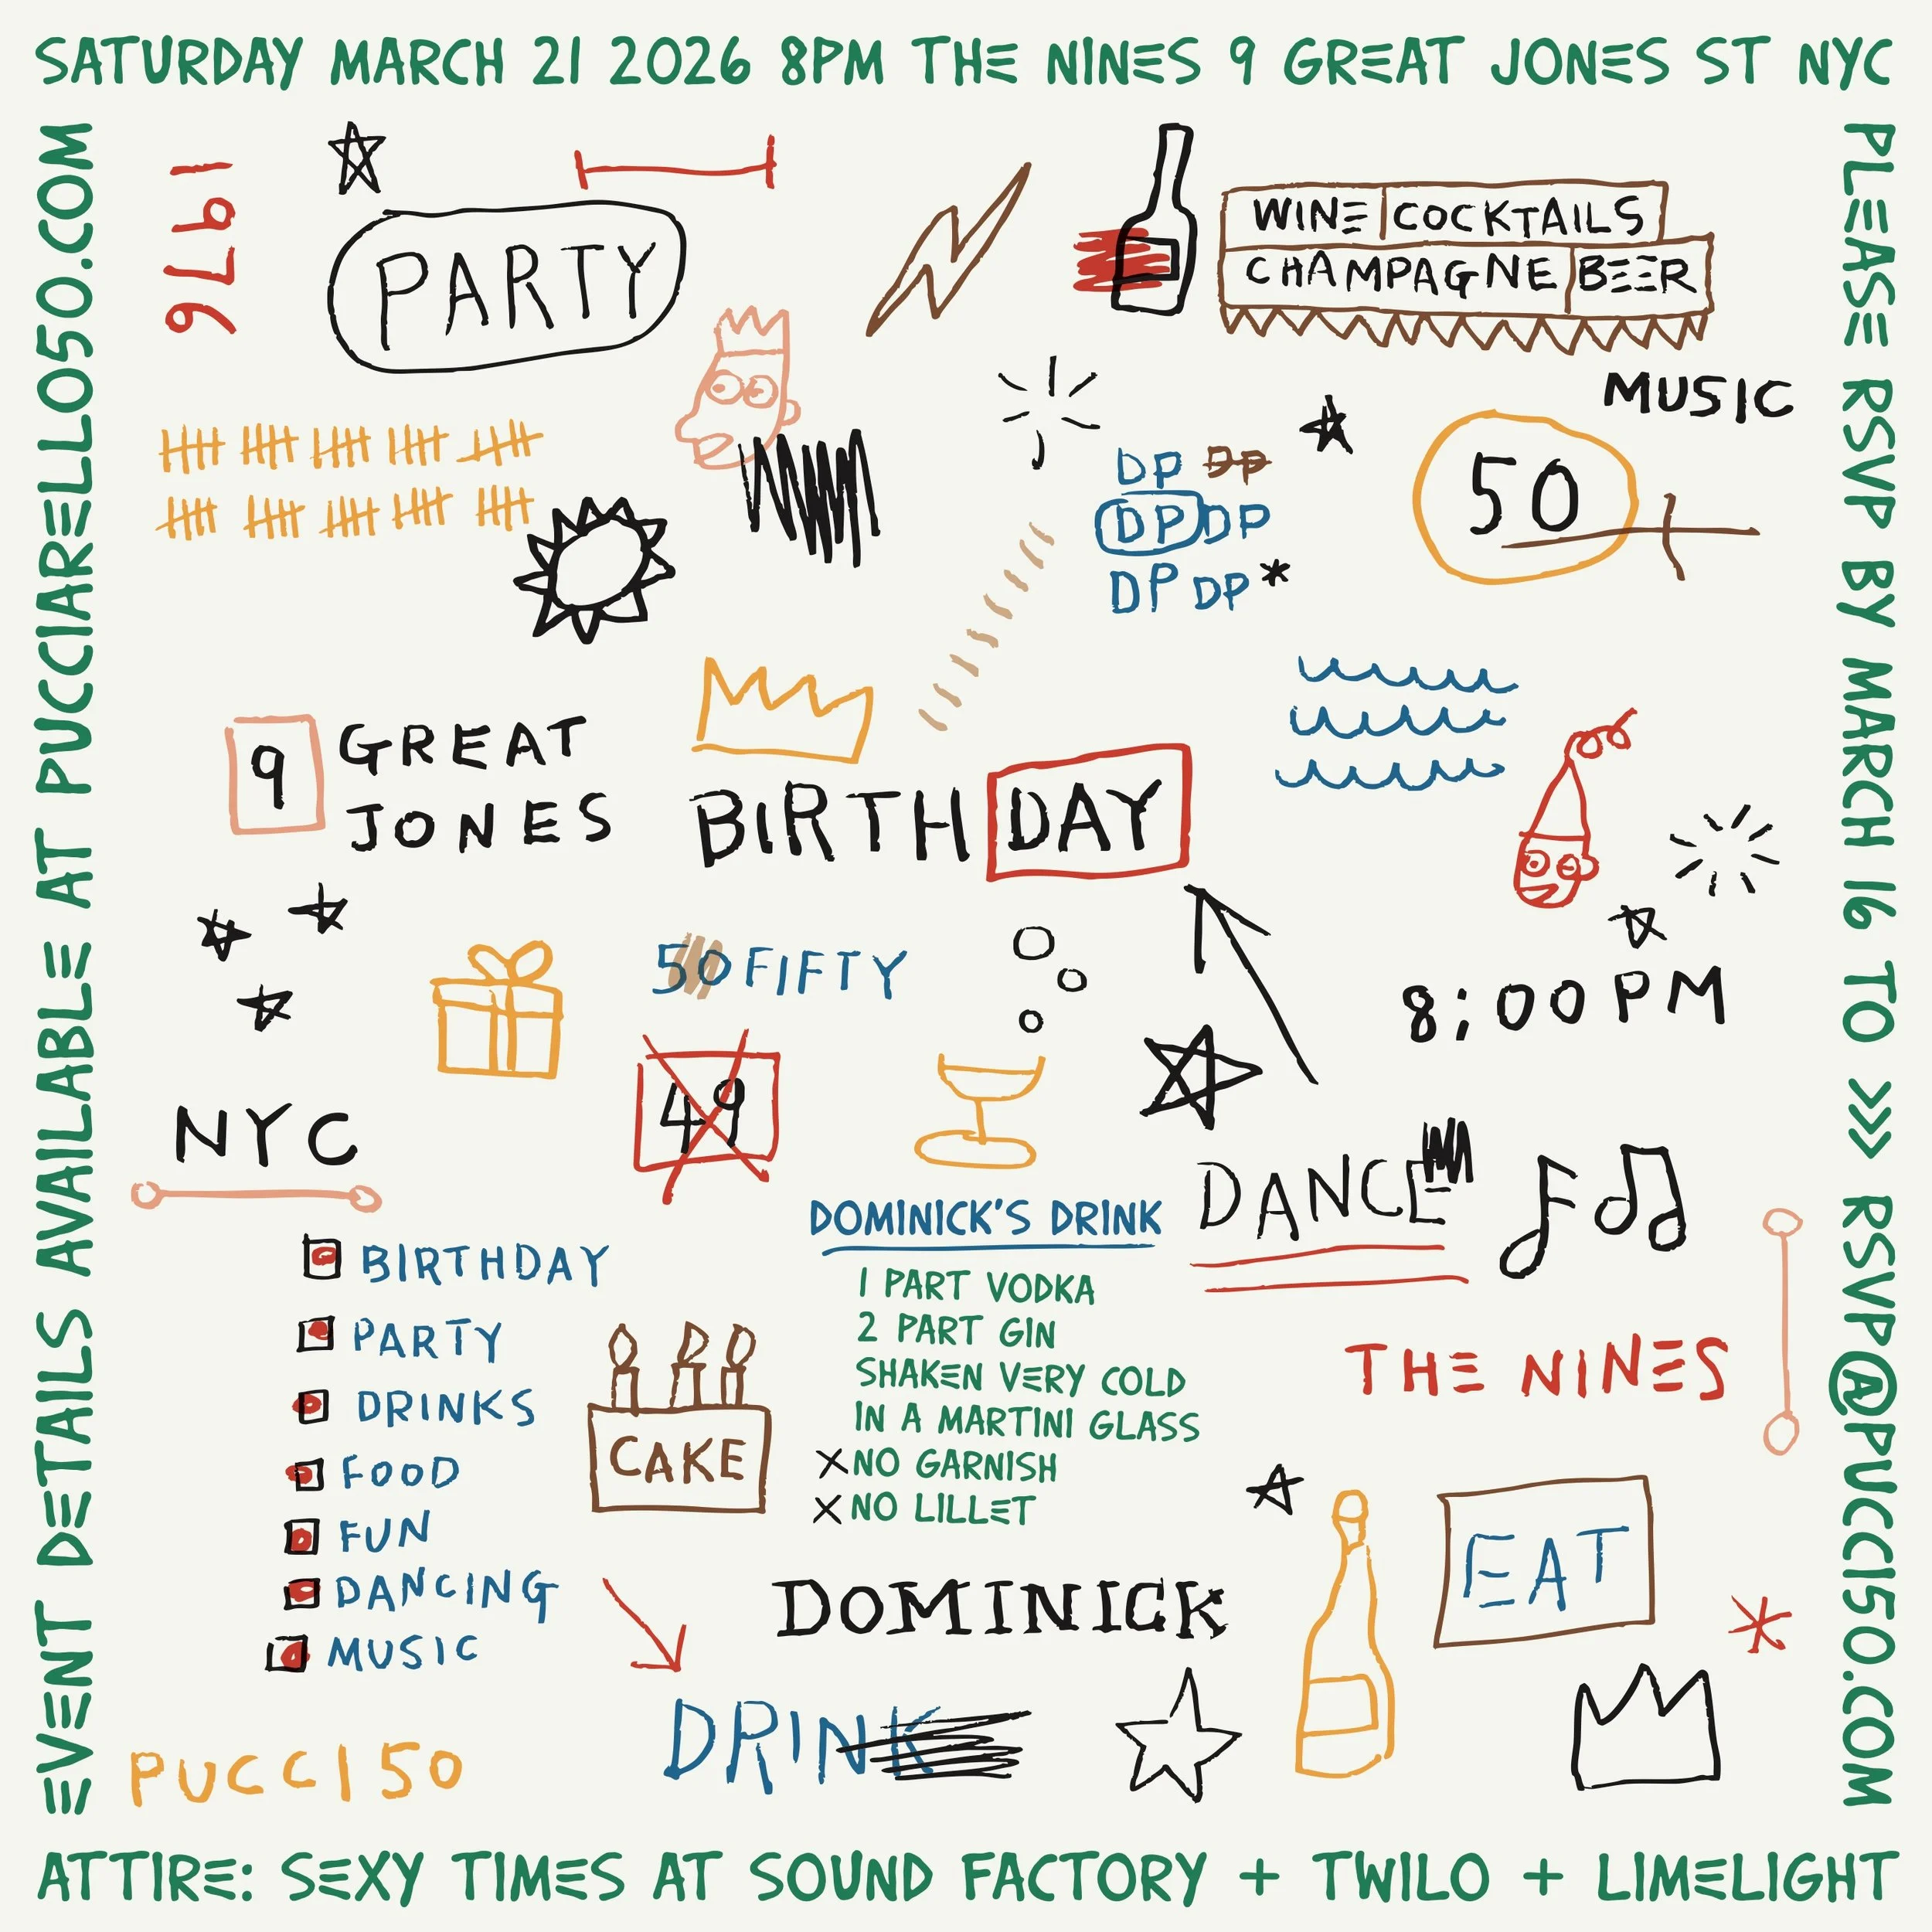 SATURDAY MARCH 21 2026 8PM THE NINES 9 GREAT JONES ST NYC
PLEASE RSVP BY MARCH 16 TO >>> RSVP@PUCCI50.COM
EVENT DETAILS AVAILABLE AT PUCCIARELLO50.COM
1976
PARTY
WINE COCKTAILS
CHAMPAGNE BEER
MUSIC
DP DP
DP DP
DP DP*
50
9 GREAT
JONES
BIRTHDAY
50 FIFTY
8:00 PM
49
NYC
DANCE
DOMINICK'S DRINK
1 PART VODKA
2 PART GIN
SHAKEN VERY COLD
IN A MARTINI GLASS
X NO GARNISH
X NO LILLET
BIRTHDAY
PARTY
DRINKS
FOOD
FUN
DANCING
MUSIC
CAKE
THE NINES
EAT
DOMINICK
DRINK
PUCCI 50
ATTIRE: SEXY TIMES AT SOUND FACTORY + TWILO + LIMELIGHT